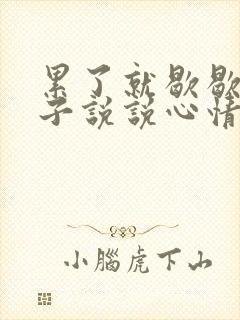 累了就歇歇
子说说心情
小腦虎下山